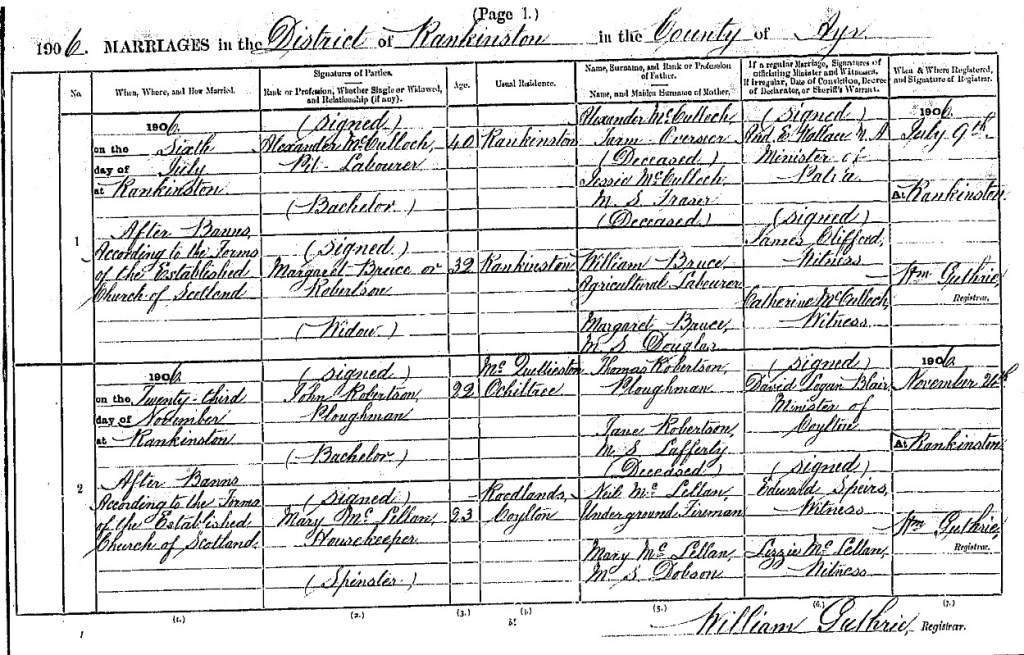 (Page 1.)
1906. MARRIAGES in the District of Rankinston in the County of Ayr
No.
When, Where, and How Married.
Signatures of Parties.
Rank or Profession, Whether Single or Widowed, and Relationship (if any).
Age.
Usual Residence.
Name, Surname, and Rank or Profession of Father.
Name, and Maiden Surname of Mother.
If a regular Marriage, Signatures of officiating Minister and Witnesses.
If irregular, Date of Conviction, Decree of Declarator, or Sheriff's Warrant.
When & Where Registered, and Signature of Registrar.
1
1906.
on the Sixth
day of July
at Rankinston
After Banns,
According to the Forms
of the Established
Church of Scotland
(Signed)
Alexander McCulloch,
Pit-Labourer
(Bachelor)
(Signed)
Margaret Bruce or
Robertson
(Widow)
40
32
Rankinston
Rankinston
Alexander McCulloch,
Farm Overseer
(Deceased)
Jessie McCulloch,
M. S. Fraser
(Deceased)
William Bruce,
Agricultural Labourer
Margaret Bruce,
M. S. Douglas
(Signed)
And. E. Wallace M.A
Minister of
(Signed)
James Clifford,
Witness
Catherine McCulloch,
Witness
1906.
July 9th
At Rankinston
Wm Guthrie,
Registrar.
2
1906.
on the Twenty-third
day of November
at Rankinston
After Banns
According to the Forms
of the Established
Church of Scotland.
(Signed)
John Robertson,
Ploughman
(Bachelor)
(Signed)
Mary McLellan,
Housekeeper
(Spinster)
22
23
Ochiltree
Roodlands,
Coylton
Thomas Robertson,
Ploughman
Jane Robertson,
M. S. Lafferty
(Deceased)
Neil McLellan,
Underground Fireman
Mary McLellan,
M. S. Dobson
(Signed)
David Logan Blair
Minister of
Coylton
(Signed)
Edward Speirs,
Witness
Lizzie McLellan,
Witness
1906.
November
At Rankinston
Wm Guthrie,
Registrar.
(1.) (2.) (3.) (4.) (5.) (6.) (7.)
William Guthrie, Registrar.